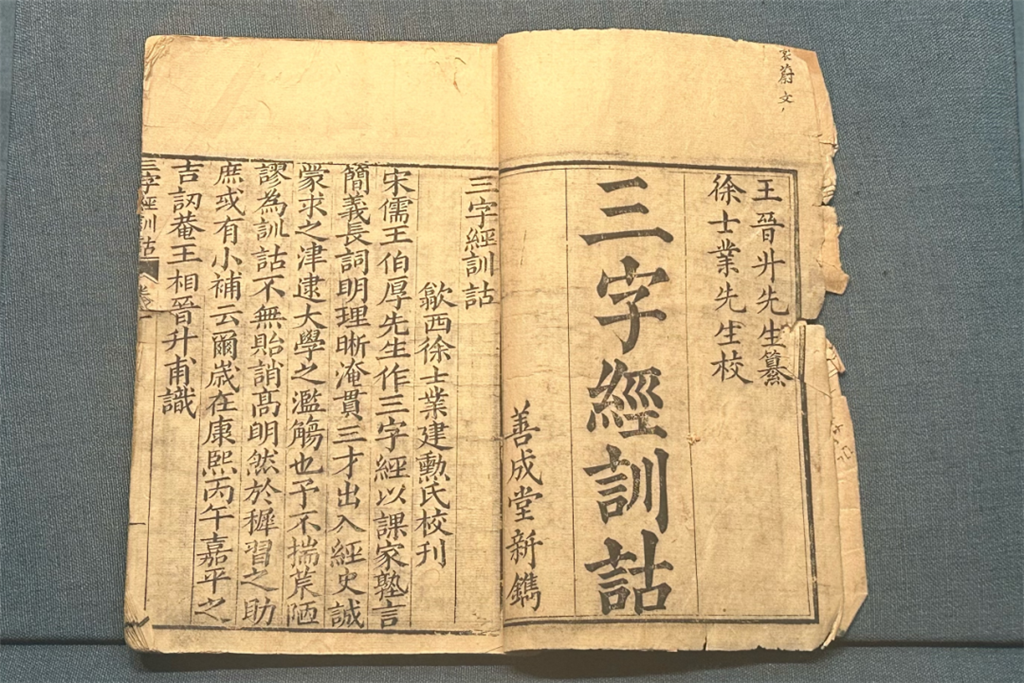 王晉升先生纂
徐士業先生校
三字經訓詁
善成堂新鐫
三字經訓詁
歙西徐士業建勳氏校刊
宋儒王伯厚先生作三字經以課家塾言
簡義長詞明理晰淹貫三才出入經史誠
蒙求之津逮大學之濫觴也予不揣荒陋
謬為訓詁不無貽誚高明然於穉習之助
庶或有小補云爾歲在康熙丙午嘉平之
吉訒菴王相晉升甫識
三字經訓詁
蔚文